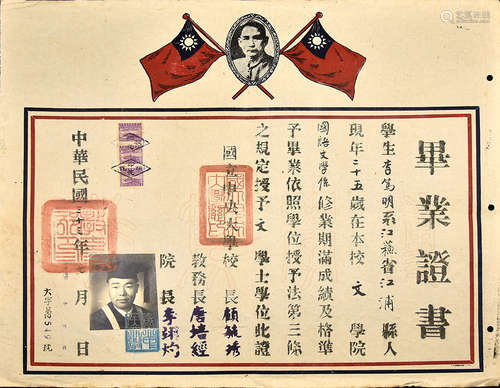 畢業證書
學生李篤明系江蘇省江浦縣人
現年二十五歲在本校文學院
國語文學系修業期滿成績及格準
予畢業依照學位授予法第三條
之規定授予文學士學位此證
國立中央大學校長顧毓琇
教務長唐培經
院長李翊灼
中華民國三十三年 月 日
大字第5 號